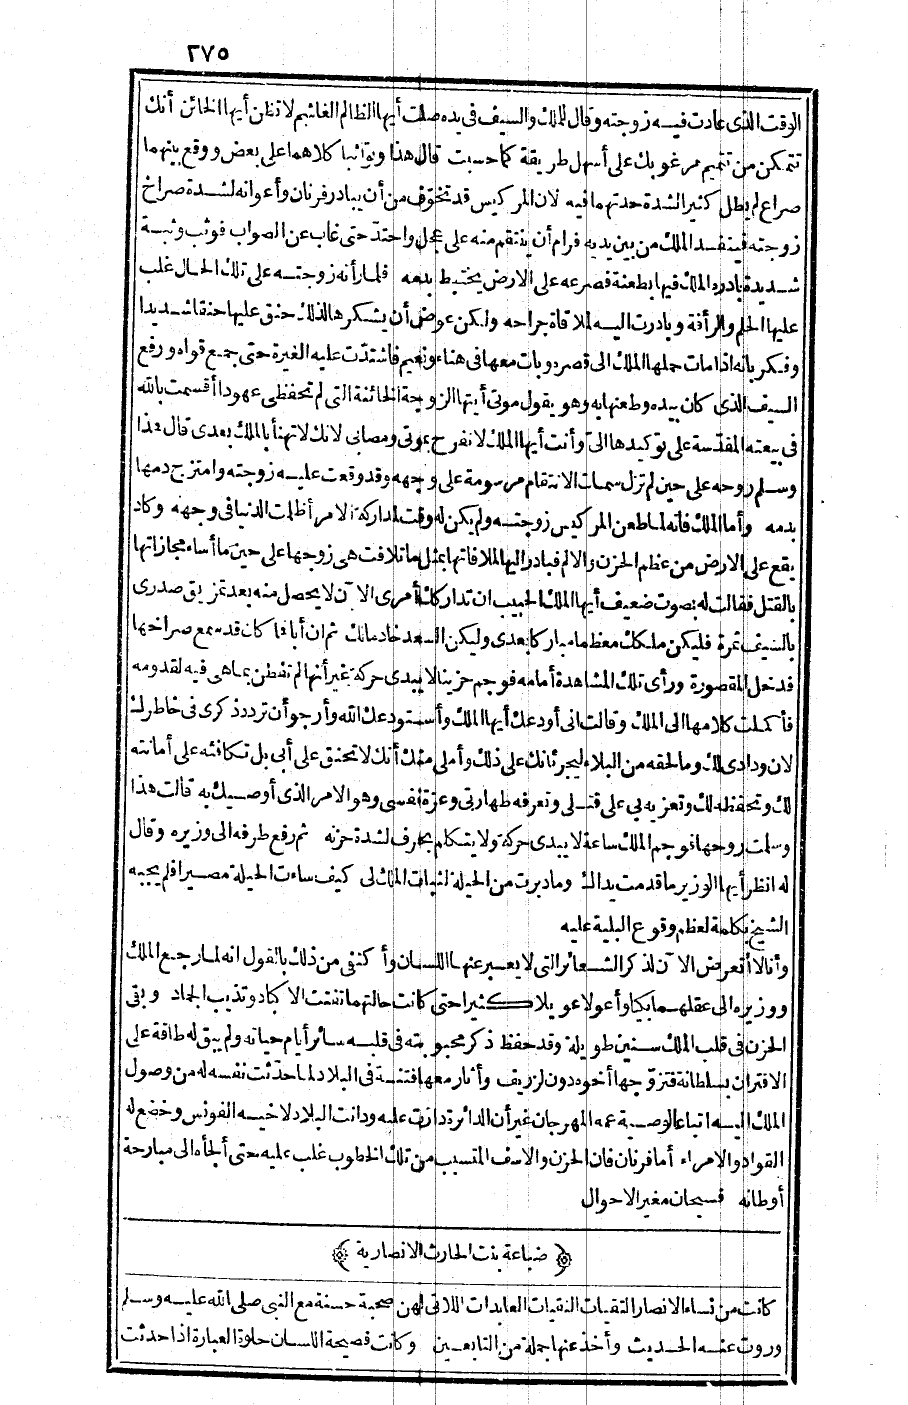 ٢٧٥
الوقت الذى عادت فيه زوجته وقال للملك والسيف فى يده صلت أيها الظالم الغاشم لا تظن أيها الخائن أنك
تتمكن من تتميم مرغوبك على أسهل طريقة كما حسبت قال هذا وتواثبا كلاهما على بعض ووقع بينهما
صراع لم يطل كثيرا لشدة حدتهما فيه لان المركيس قد تخوّف من أن يبادر فرنان وأعوانه لشدة صراخ
زوجته فينقذ الملك من بين يديه فرام أن ينتقم منه على عجل واحتد حتى غاب عن الصواب فوثب وثبة
شديدة بادره الملك فيها بطعنة فصرعه على الارض يختبط بدمه فلما رأته زوجته على تلك الحال غلب
عليها الحلم والرأفة وبادرت اليه لملاقاة جراحه ولكن عوض أن يشكرها لذلك حنق عليها حنقا شديدا
وفكر بانه اذا مات حملها الملك الى قصره وبات معها فى هناء ونعيم فاشتدّت عليه الغيرة حتى جمع قواه ورفع
السيف الذى كان بيده وطعنها به وهو يقول موتى أيتها الزوجة الخائنة التى لم تحفظى عهودا أقسمت بالله
فى بيعته المقدّسة على توكيدها الىّ وأنت أيها الملك لا تفرح بموتى ومصابى لانك لا تهنأ بالملك بعدى قال هذا
وسلم روحه على حين لم تزل سمات الانتقام مرسومة على وجهه وقد وقعت عليه زوجته وامتزج دمها
بدمه وأما الملك فانه لما طعن المركيس زوجته ولم يكن له وقت لمداركة الامر أظلمت الدنيا فى وجهه وكاد
يقع على الارض من عظم الحزن والالم فبادر اليها لملافاتها بمثل ما تلافت هى زوجها على حين ما أساء مجازاتها
بالقتل فقالت له بصوت ضعيف أيها الملك الحبيب ان تداركك أمرى الا آن لا يحصل منه بعد تمزيق صدرى
بالسيف ثمرة فليكن ملكك معظما مباركا بعدى وليكن السعد خادمالك ثم ان أباها كان قد سمع صراخها
فدخل المقصورة ورأى تلك المشاهدة أمامه فوجم حزينا لا يبدى حركة غير أنها لم تفطن بما هى فيه لقدومه
فأكملت كلامها الى الملك وقالت انى أودعك أيها الملك وأستودعك الله وأرجو أن تردد ذكرى فى خاطرك
لان ودادى لك وما لحقه من البلاء ليجرئانك على ذلك وأملى منك أنك لا تحنق على أبى بل تكافئه على أمانته
لك وتحفظه لك وتعزيه بى على قتلى وتعرفه طهارتى وعزة نفسى وهو الامر الذى أوصيك به قالت هذا
وسلمت روحها فوجم الملك ساعة لا يبدى حركة ولا يتكلم بحرف لشدة حزنه ثم رفع طرفه الى وزيره وقال
له انظر أيها الوزير ما قدمت يداك وما دبرت من الحيلة لثبات الملك لى كيف ساءت الحيلة مصيرا فلم يجبه
الشيخ بكلمة لعظم وقوع البلية عليه
وأنا لا أتعرض الا آن لذكر الشعائر التى لا يعبر عنها اللسان وأكتفى من ذلك بالقول انه لما رجع الملك
ووزيره الى عقلهما بكيا وأعولا عويلا كثيرا حتى كانت حالتهما تفتت الاكباد وتذيب الجماد وبقى
الحزن فى قلب الملك سنين طويلة وقد حفظ ذكر محبوبته فى قلبه سائر أيام حياته ولم يبق له طاقة على
الاقتران بسلطانة فتزوّجها أخوه دون لزريف وأثار معها فتنة فى البلاد لما حدّثت نفسه له من وصول
الملك اليه اتباعا لوصية عمه المهرجان غير أن الدائرة دارت عليه ودانت البلاد لاخيه الفونس وخضع له
القواد والامراء أما فرنان فان الحزن والاسف المتسبب من تلك الخطوب غلب عليه حتى ألجأه الى مبارحة
أوطانه فسبحان مغير الاحوال
﴿ ضباعة بنت الحارث الانصارية ﴾
كانت من نساء الانصار التقيات النقيات العابدات اللاتى لهن صحبة حسنة مع النبى صلى الله عليه وسلم
وروت عنه الحديث وأخذ عنها جملة من التابعين وكانت فصيحة اللسان حلوة العبارة اذا حدثت